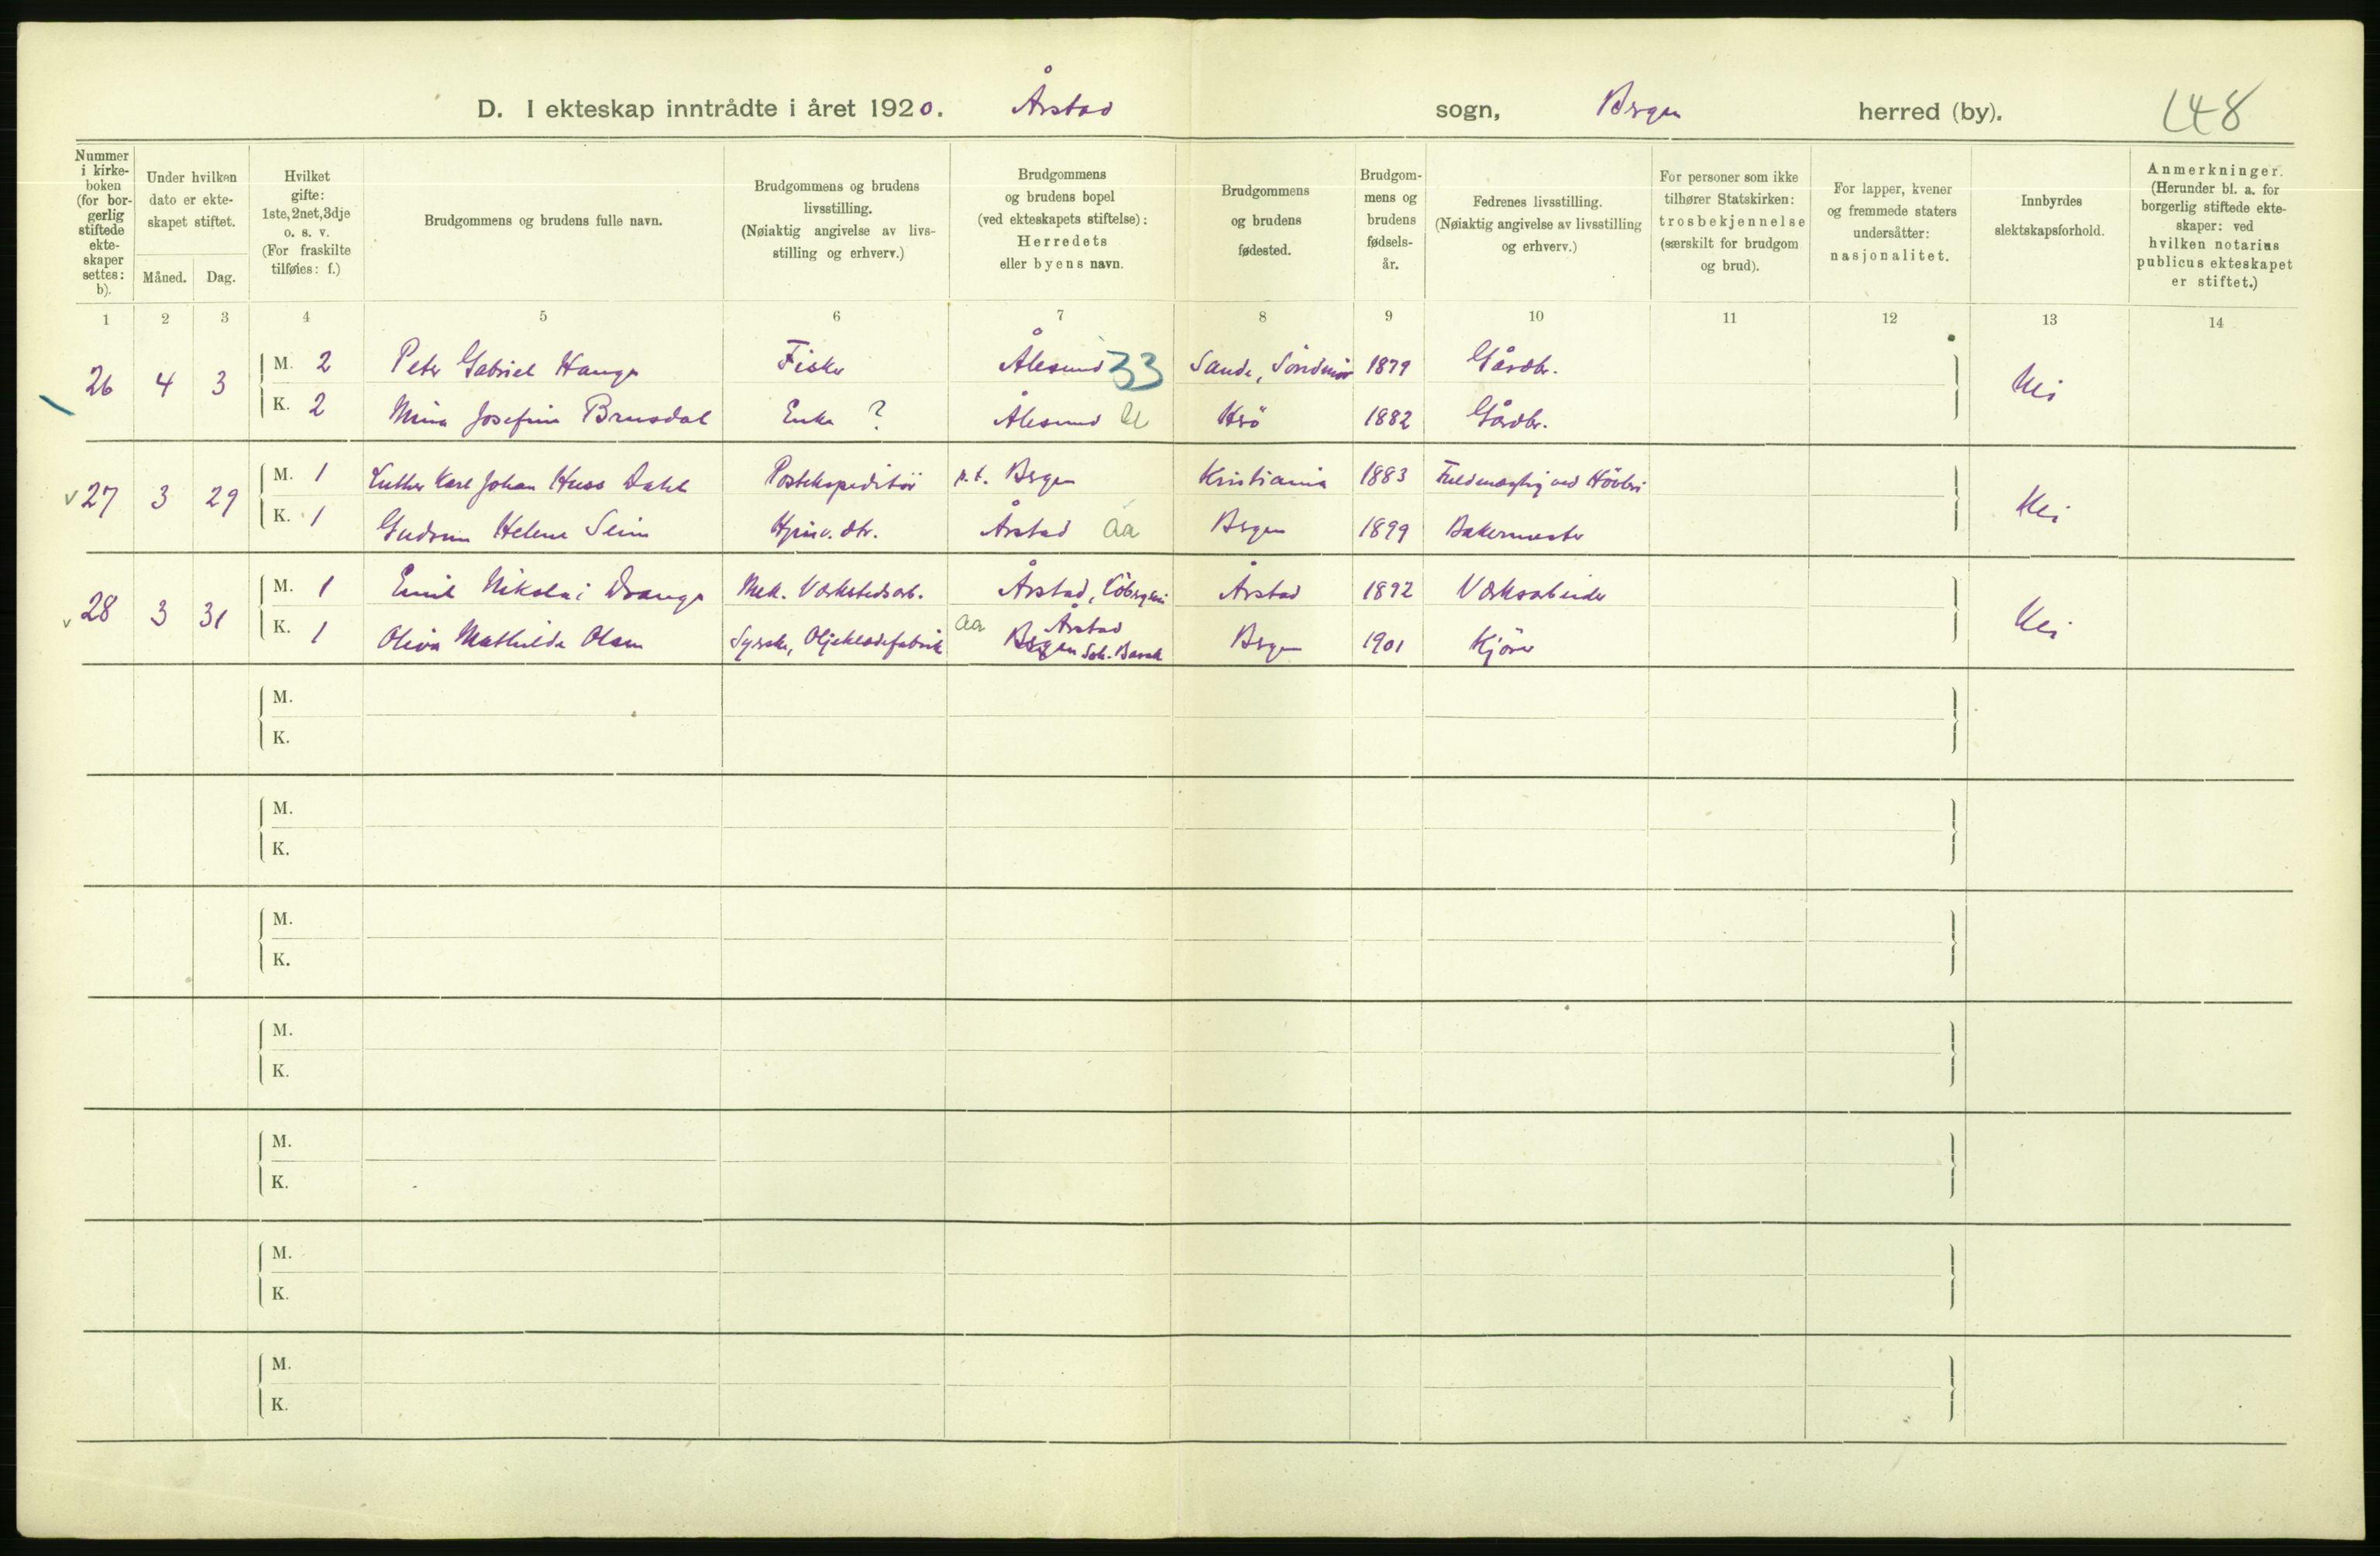 D. I ekteskap inntrådte i året 1920. Årstad sogn, Bergen herred (by). 148
Nummer i kirke-boken (for bor-gerlig stiftede ekte-skaper settes: b).
Under hvilken dato er ekte-skapet stiftet.
Måned. Dag.
Hvilket gifte: 1ste, 2net, 3dje o. s. v. (For fraskilte tilføies: f.)
Brudgommens og brudens fulle navn.
Brudgommens og brudens livsstilling. (Nøiaktig angivelse av livs-stilling og erhverv.)
Brudgommens og brudens bopel (ved ekteskapets stiftelse): Herredets eller byens navn.
Brudgommens og brudens fødested.
Brudgom-mens og brudens fødsels-år.
Fedrenes livsstilling. (Nøiaktig angivelse av livsstilling og erhverv.)
For personer som ikke tilhører Statskirken: trosbekjennelse (særskilt for brudgom og brud).
For lapper, kvener og fremmede staters undersåtter: nasjonalitet.
Innbyrdes slektskapsforhold.
Anmerkninger. (Herunder bl. a. for borgerlig stiftede ekte-skaper: ved hvilken notarius publicus ekteskapet er stiftet.)
1 2 3 4 5 6 7 8 9 10 11 12 13 14
26 4 3 M. 2 Peter Gabriel Hauge Fisker Ålesund 33 Sande, Söndmör 1879 Gårdbr. Nei
K. 2 Mina Josefine Brusdal Enke ? Ålesund 1882 Gårdbr.
27 3 29 M. 1 Luther Karl Johan Huss Dahl Postekspeditör p.t. Bergen Kristiania 1883 Fuldmægtig ved Nei
K. 1 Gudrun Helene Seim Hjemv. dtr. Årstad Aa Bergen 1899 Bakermester
28 3 31 M. 1 Emil Nikolai Drange Mek. Verkstedsarb. Årstad, Årstad 1892 Verksarbeider Nei
K. 1 Oliva Mathilde Olsen Syerske, Oljeklædefabrik Aa Årstad Bergen Bergen 1901 Kjörer
M.
K.
M.
K.
M.
K.
M.
K.
M.
K.
M.
K.
M.
K.